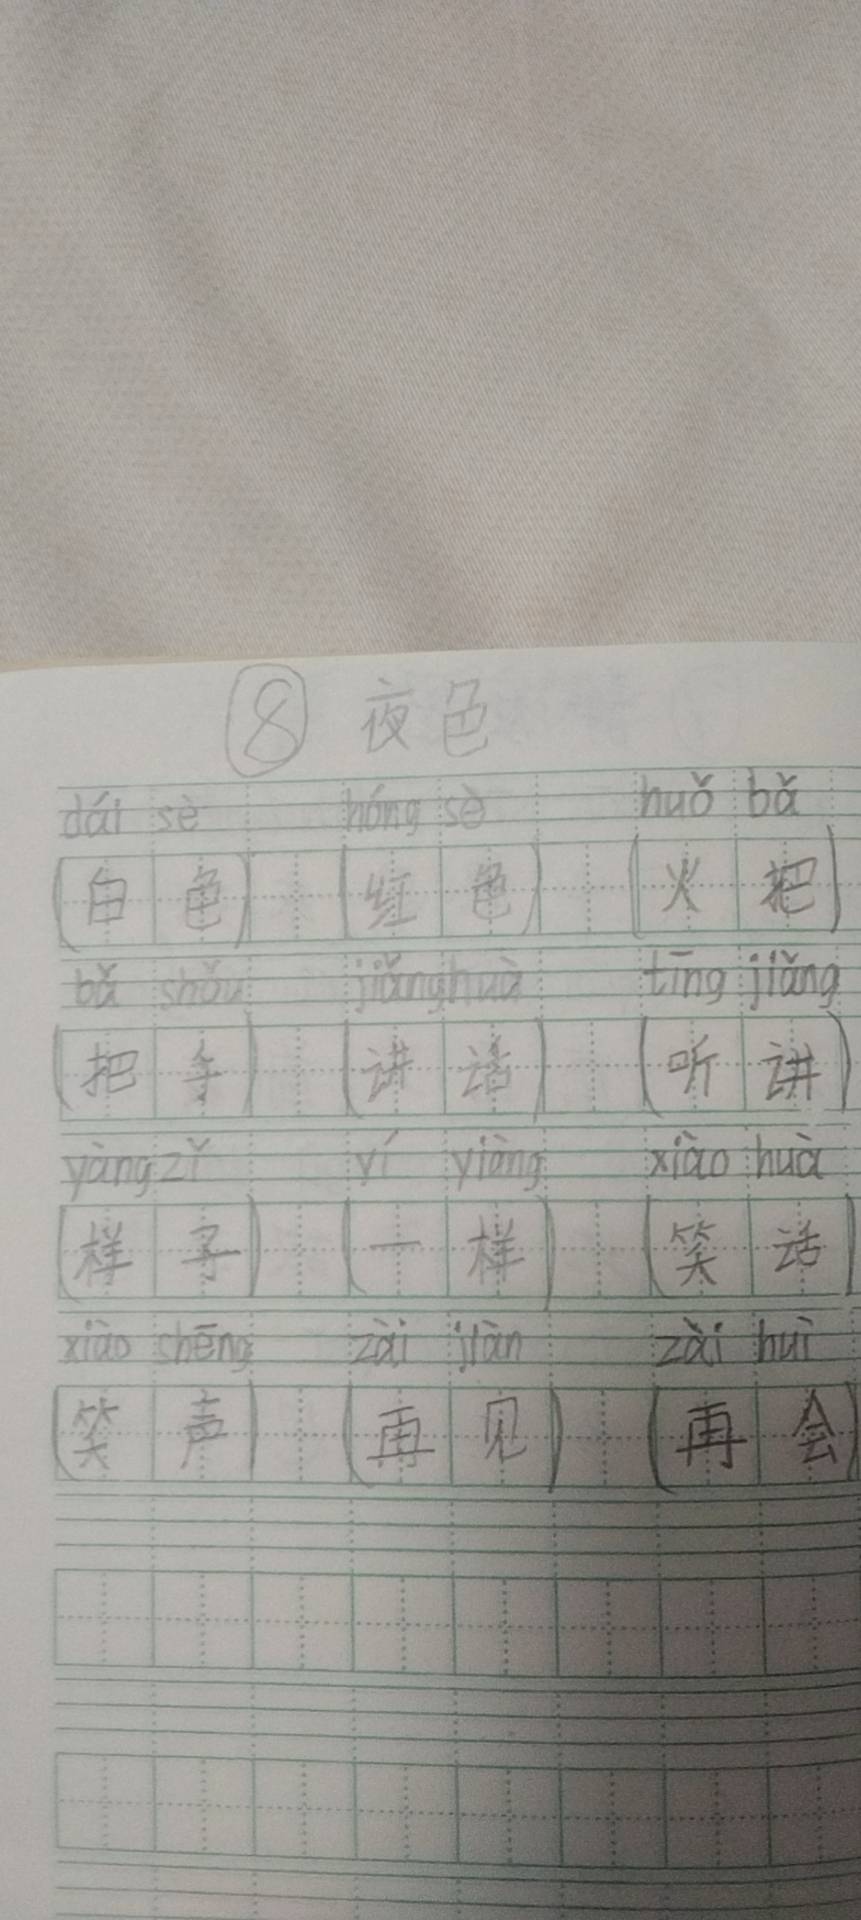 ⑧ 夜色
dái sè hóng sè huǒ bǎ
(白色) (红色) (火把)
bǎ shǒu jiǎnghuà tīng jiǎng
(把手) (讲话) (听讲)
yàngzǐ yí yiàng xiào huà
(样子) (一样) (笑话)
xiào shēng zài jiàn zài huì
(笑声) (再见) (再会)